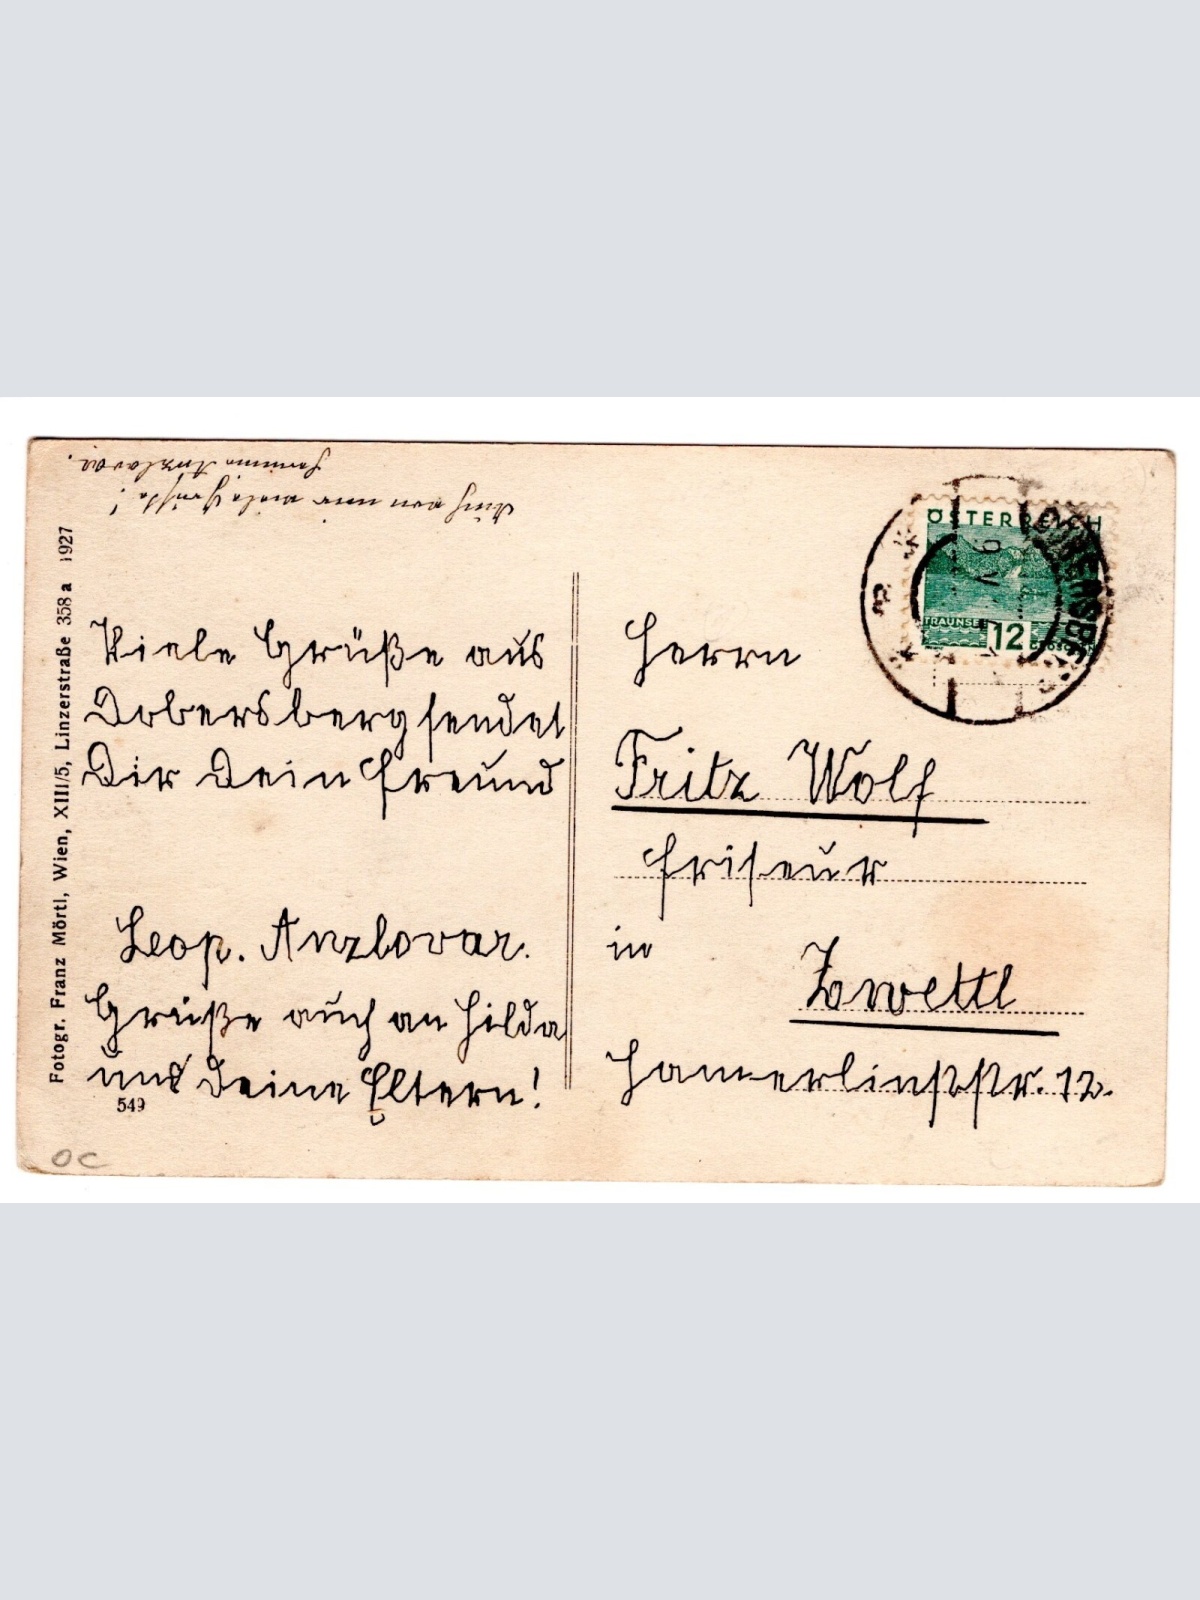 Auch von mir viele Grüße!
Anzlovar.
Viele Grüße aus
Dobersberg sendet
Dir Dein Freund
Leop. Anzlovar.
Grüße auch an Hilda
und Deine Eltern!
549
OC
Fotogr. Franz Mörtl, Wien, XIII/5, Linzerstraße 358 a 1927
ÖSTERREICH
TRAUNSEE
12
GROSCHEN
DOBERSBERG
Herrn
Fritz Wolf
Friseur
in
Zwettl
Hamerlingstr. 12.